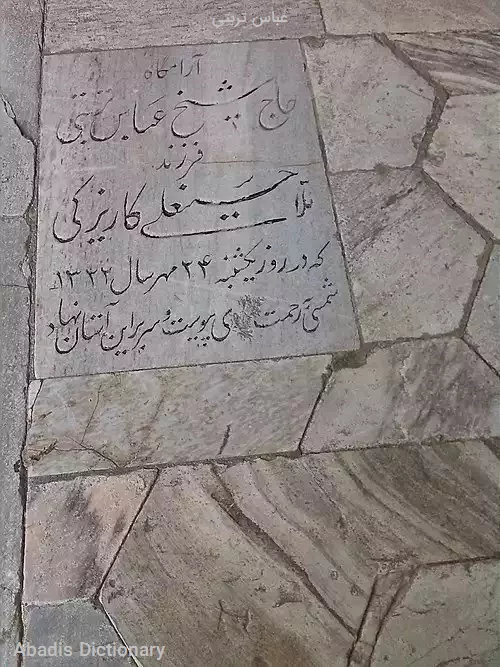 عباس تربتی
آرامگاه
حاج شیخ عباس تربتی
فرزند
ملا حسینعلی کاریزکی
که در روز یکشنبه ۲۴ مهر سال ۱۳۲۲
شمسی برحمت ی پیوست و سر براین آستان نهاد
Abadis Dictionary